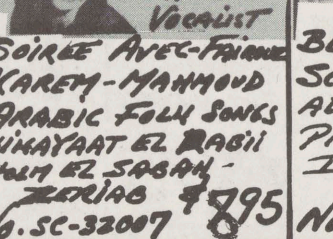 VOCALIST
SOIREE AVEC-FAIROUZ
KAREM-MAHMOUD
ARABIC FOLK SONGS
HIKAYAAT EL RABII
YOLM EZ SABAH-
ZERIAB $895
O. SC-32007